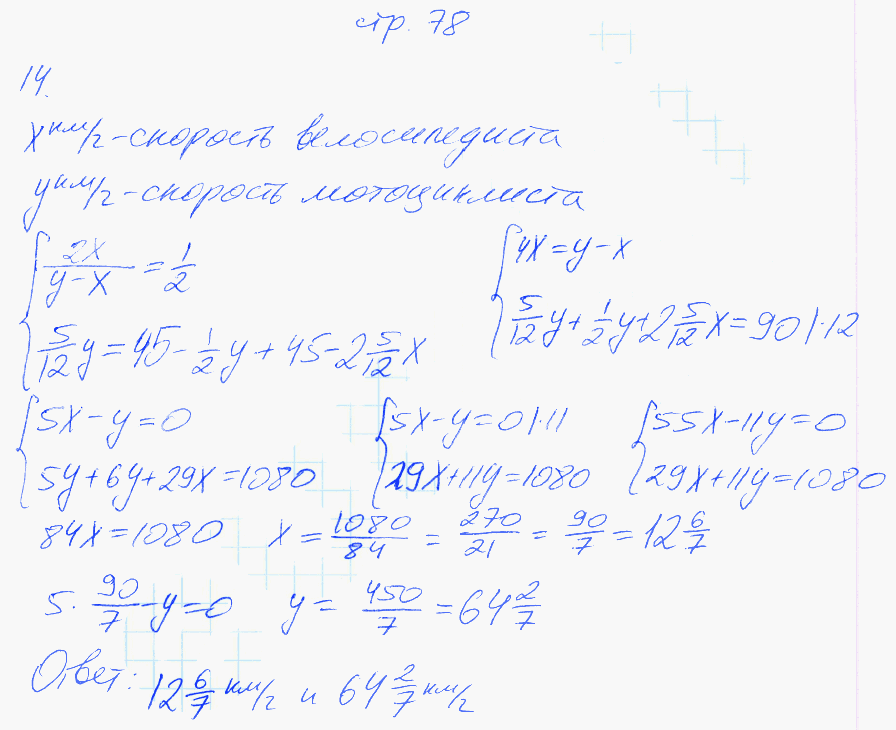 стр. 78
14.
x км/г - скорость велосипедиста
y км/г - скорость мотоциклиста
{ 2x/(y-x) = 1/2 { 4x = y - x
{ 5/12 y = 45 - 1/2 y + 45 - 2 5/12 x { 5/12 y + 1/2 y + 2 5/12 x = 90 | · 12
{ 5x - y = 0 { 5x - y = 0 | · 11 { 55x - 11y = 0
{ 5y + 6y + 29x = 1080 { 29x + 11y = 1080 { 29x + 11y = 1080
84x = 1080 x = 1080/84 = 270/21 = 90/7 = 12 6/7
5 · 90/7 - y = 0 y = 450/7 = 64 2/7
Ответ: 12 6/7 км/г и 64 2/7 км/г